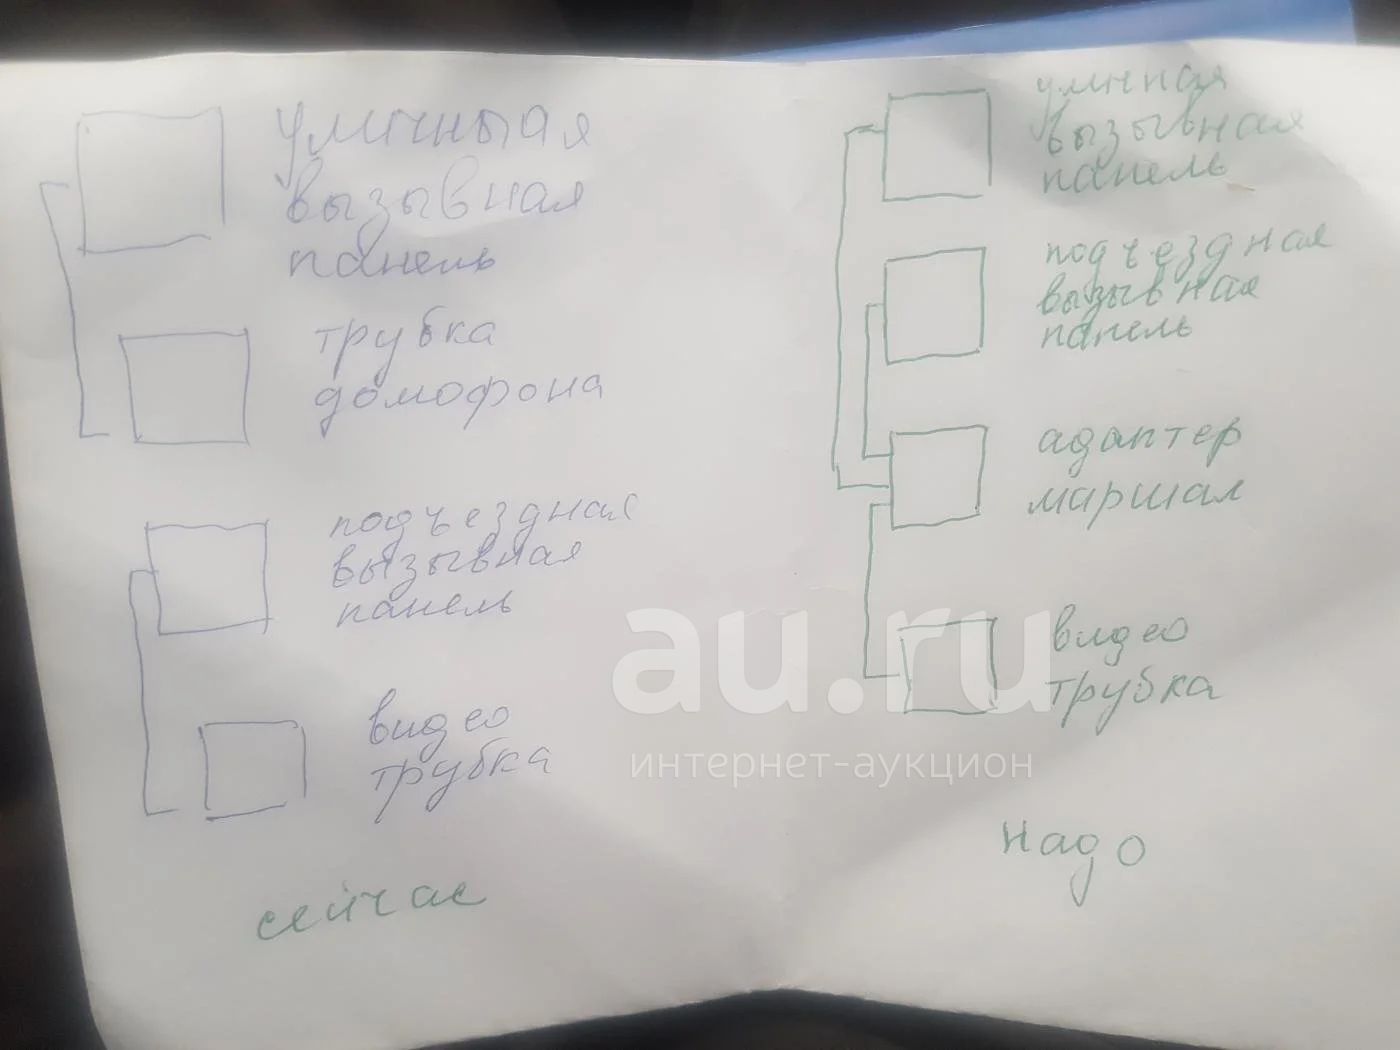 уличныая
вызывная
панель
трубка
домофона
подъездная
вызывная
панель
видео
трубка
сейчас
уличная
вызывная
панель
подъездная
вызывная
панель
адаптер
маршал
видео
трубка
надо
au.ru
интернет-аукцион